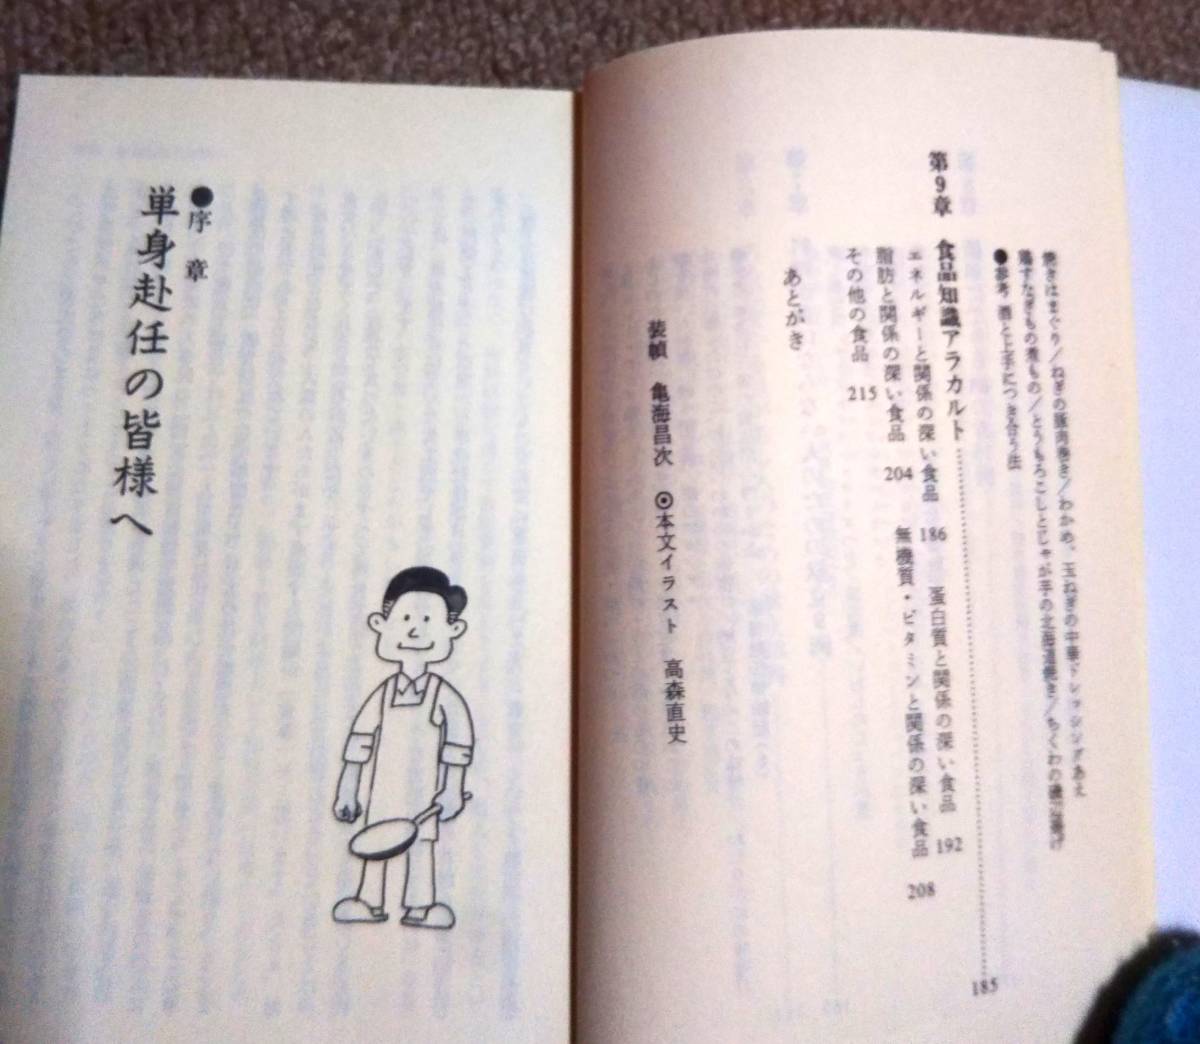 焼きはまぐり/ねぎの豚肉巻き/わかめ、玉ねぎの中華ドレッシングあえ
鶏すなぎもの煮もの/とうもろこしとじゃが芋の北海道焼き/ちくわの磯辺揚げ
●参考 酒と上手につき合う法
第9章 食品知識アラカルト 185
エネルギーと関係の深い食品 186 蛋白質と関係の深い食品 192
脂肪と関係の深い食品 204 無機質・ビタミンと関係の深い食品 208
その他の食品 215
あとがき
装幀 亀海昌次 ◎本文イラスト 高森直史
●序章
単身赴任の皆様へ